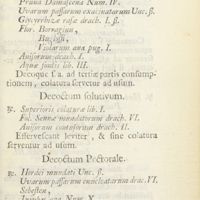 Pruna Damascena Num. IV.
Uvarum passarum exacinatarum Unc. ß.
Glycyrrhizæ rasæ drach. I. ß.
Flor. Boraginis,
Buglossi,
Violarum ana pug. I.
Anisorum drach. I.
Aquæ fontis lib. III.
Decoque s. a. ad tertiæ partis consump-
tionem, colatura servetur ad usum.
Decoctum solutivum.
℞. Superioris colaturæ lib. I.
Fol. Sennæ mundatorum drach. VI.
Anisorum contusorum drach. II.
Effervescant leviter, & fine colatura
servetur ad usum.
Decoctum Pectorale.
℞. Hordei mundati Unc. ß.
Uvarum passarum enucleatarum drac. VI.
Sebesten,
Jujubas ana Num. X.